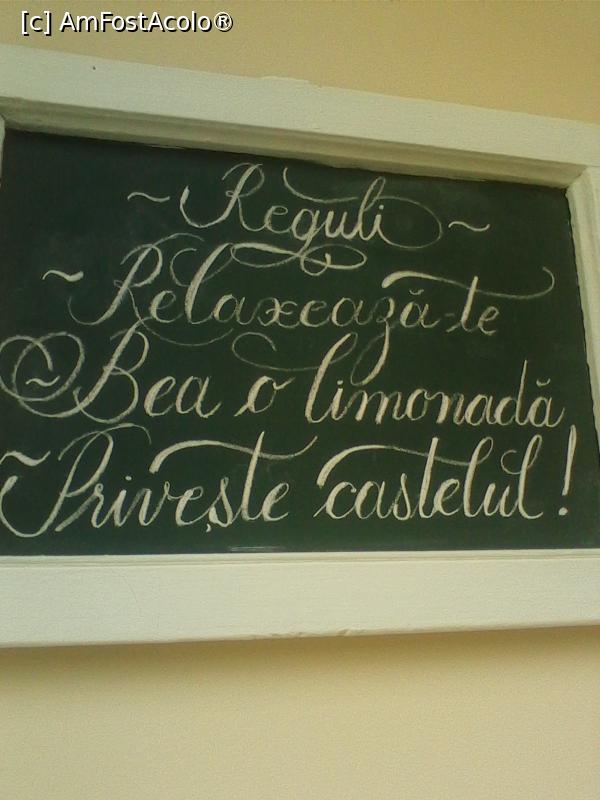 [c] AmFostAcolo®
~ Reguli ~
~ Relaxează-te
~ Bea o limonadă
~ Privește castelul!